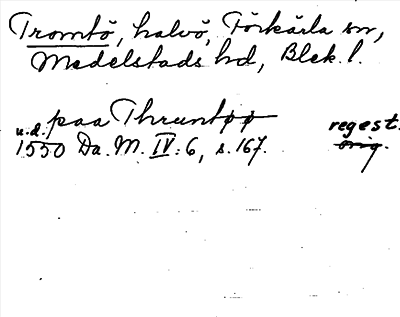 Tromtö, halvö, Förkärla sn,
Medelstads hd, Blek. l.
paa Thruntøø regest.
u.d. 1550 Da. M. IV: 6, s. 167. orig.